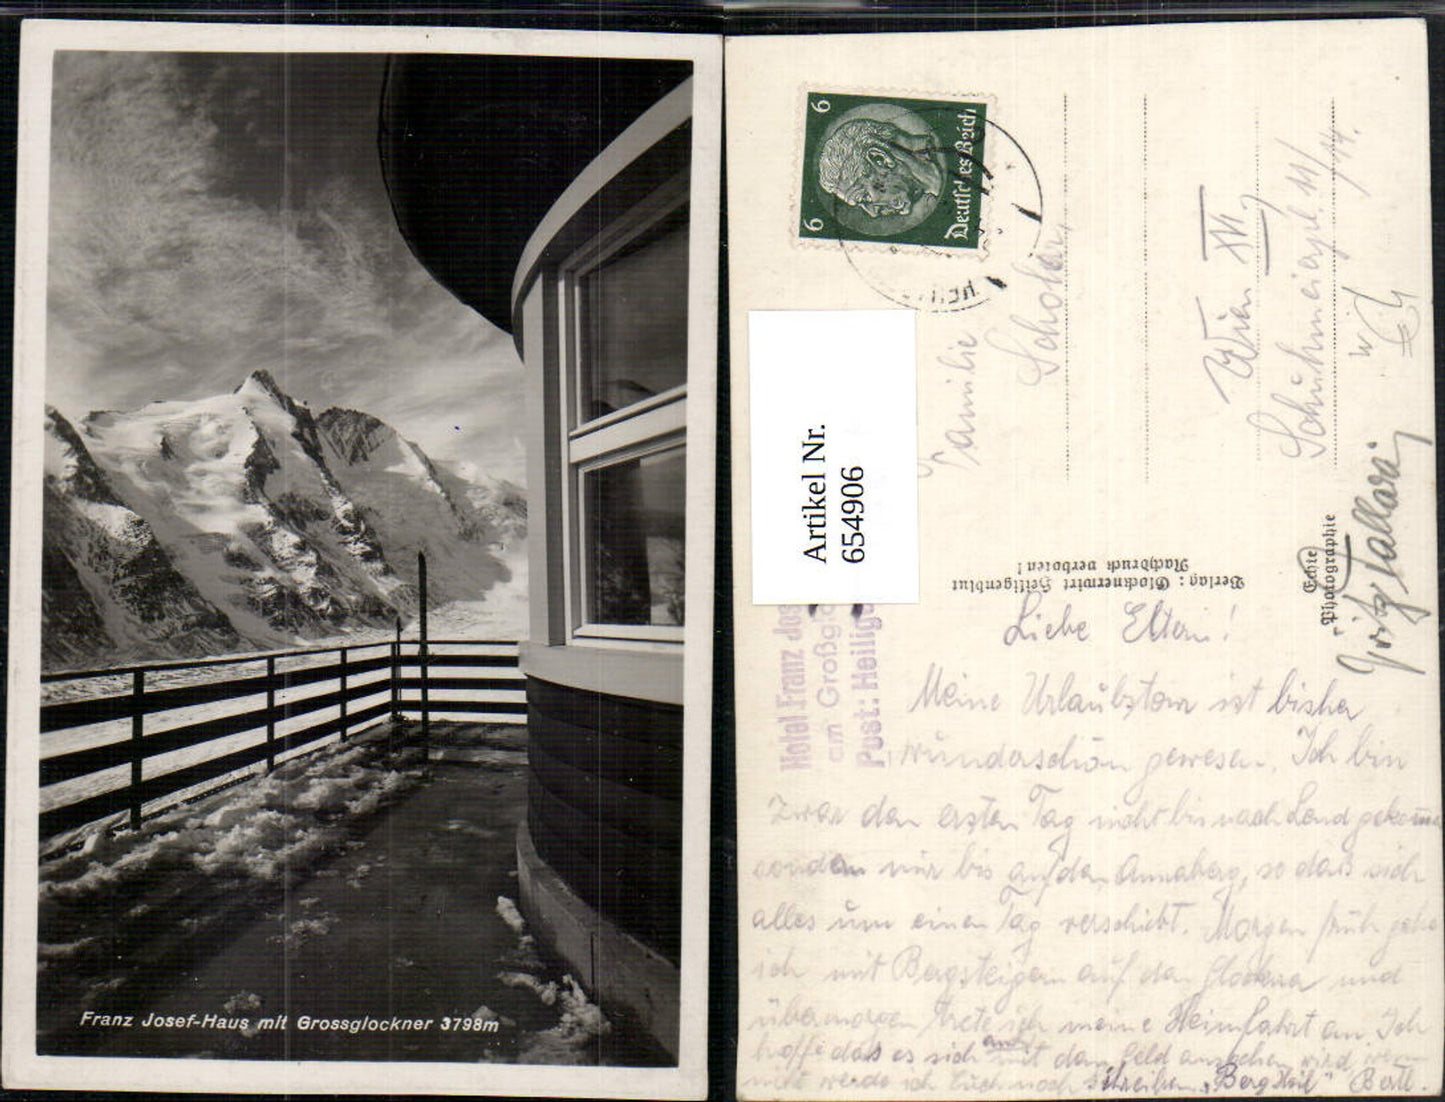 Franz Josef-Haus mit Grossglockner 3798m
6 6
Deutsches Reich
Artikel Nr.
654906
Familie
Schober
Wien XVI,
11/14.
Verlag: Glocknerwirt Heiligenblut
Nachdruck verboten!
Echte
Photographie
Hotel Franz Jos
am Großglo
Post: Heilig
Liebe Eltern!
Meine Urlaubstour ist bisher
wunderschön gewesen. Ich bin
zwar den ersten Tag nicht bis nach Lend gekommen
sondern nur bis auf den Annaberg, so dass sich
alles um einen Tag verschiebt. Morgen früh gehe
ich mit Bergsteigern auf den Glockner und
übermorgen trete ich meine Heimfahrt an. Ich
hoffe dass es sich mit dem Geld ausgehen wird wenn
nicht werde ich Euch noch schreiben. „Berg Heil" Bertl.